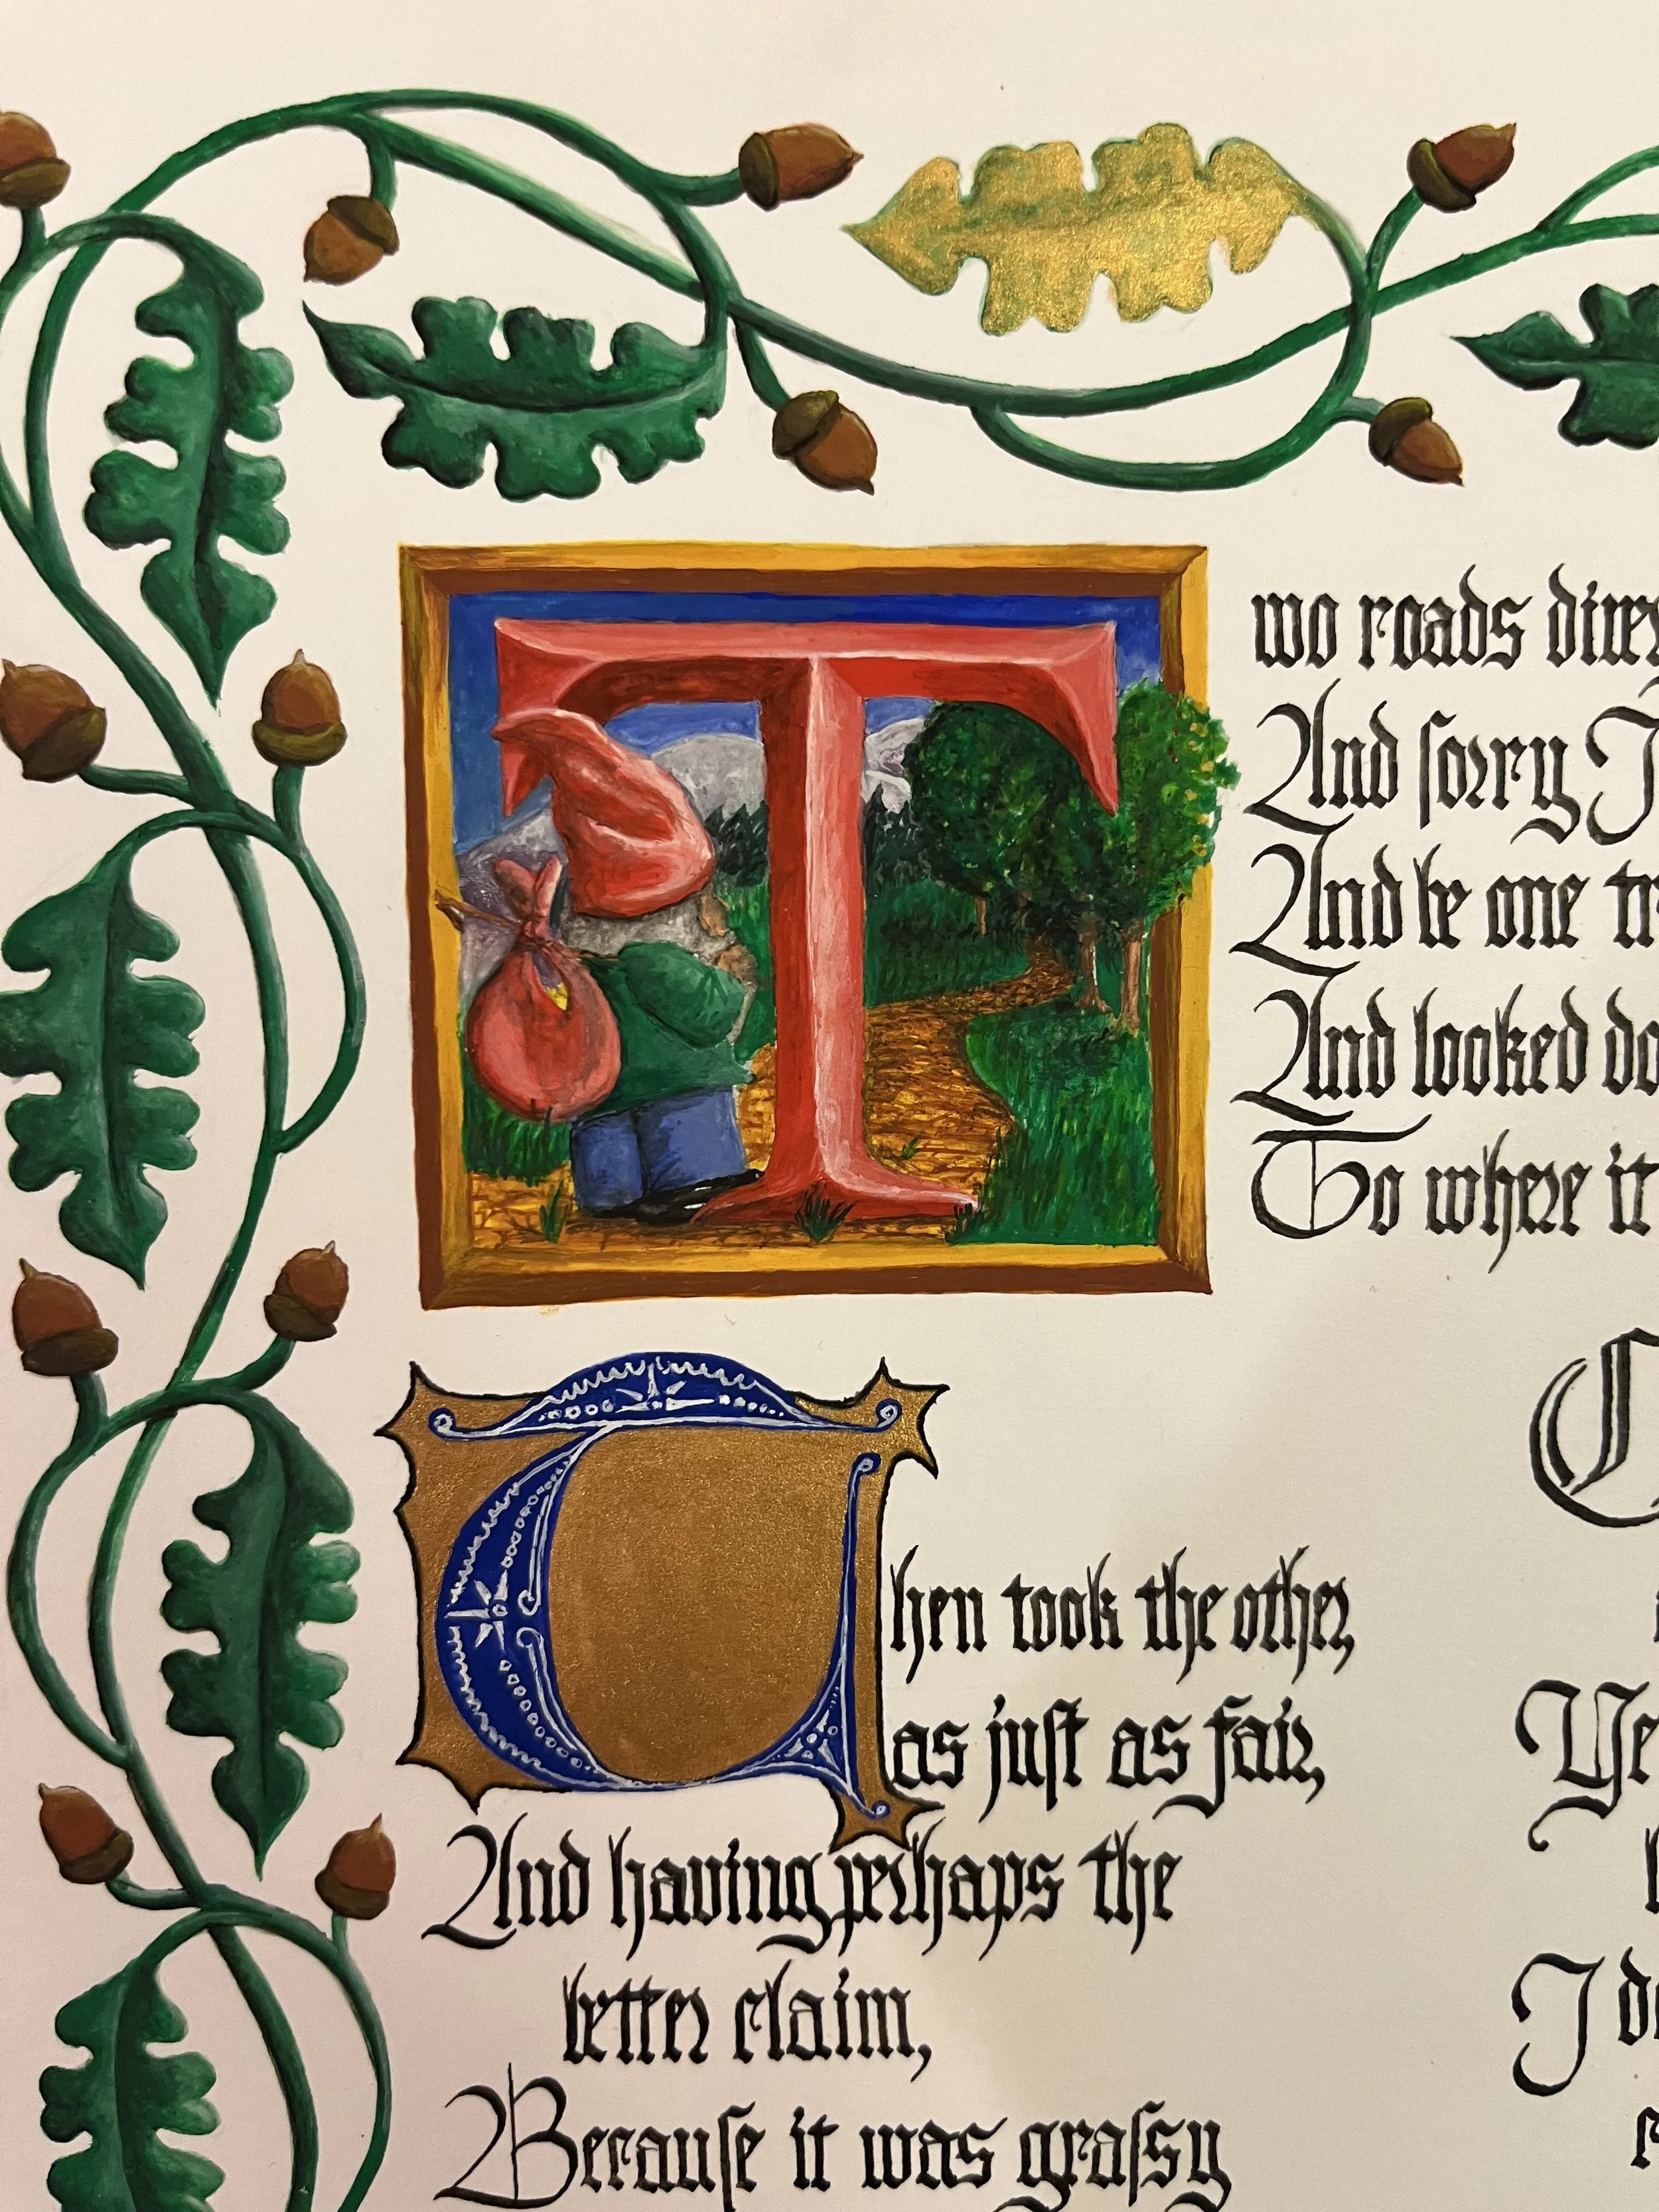 Two roads
And ſorry I
And be one
And looked
To where it
Then took the other,
as juſt as fair,
And having perhaps the
better claim,
Becauſe it was graſsy
I